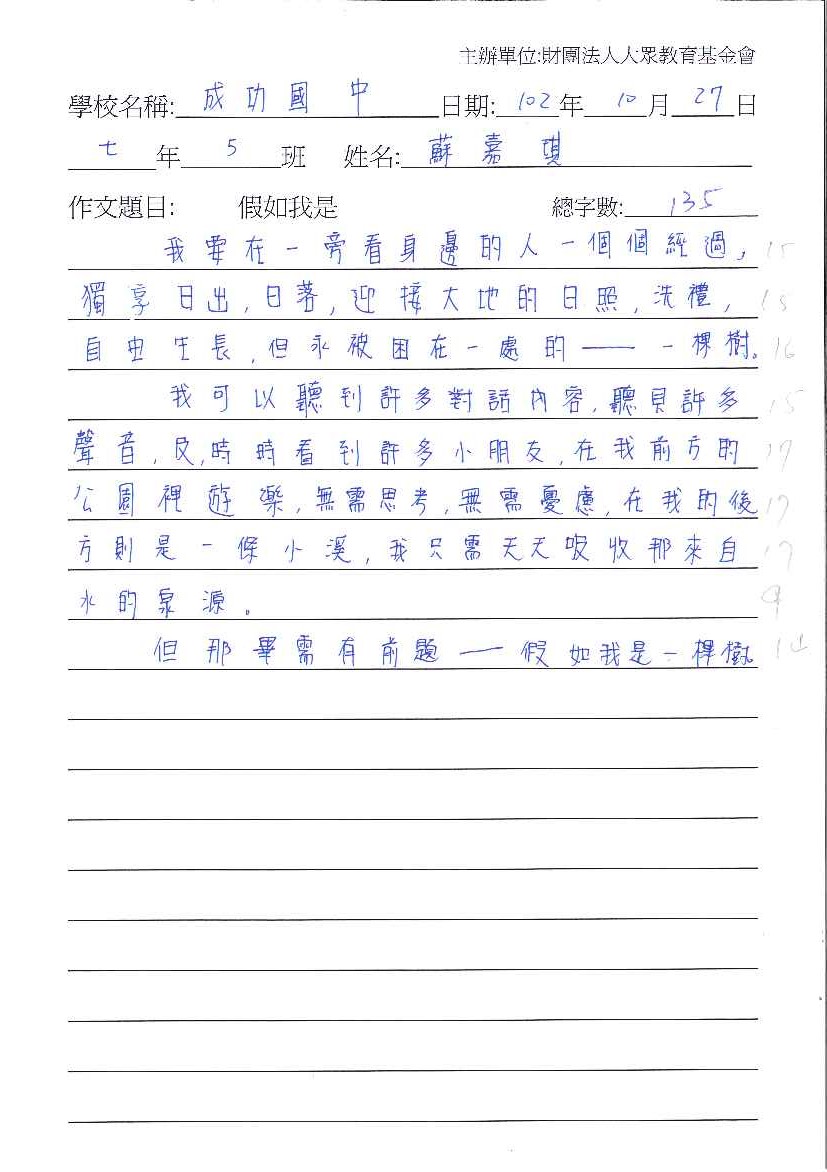 主辦單位:財團法人大眾教育基金會
學校名稱: 成功國中 日期: 102 年 10 月 27 日
七 年 5 班 姓名: 蘇嘉琪
作文題目: 假如我是 總字數: 135
我要在一旁看身邊的人一個個經過, 15
獨享日出,日落,迎接大地的日照,洗禮, 15
自由生長,但永被困在一處的——一棵樹。 16
我可以聽到許多對話內容,聽見許多 15
聲音,及,時時看到許多小朋友,在我前方的 17
公園裡遊樂,無需思考,無需憂慮,在我的後 17
方則是一條小溪,我只需天天吸收那來自 17
水的泉源。 9
但那畢需有前題—假如我是一棵樹。